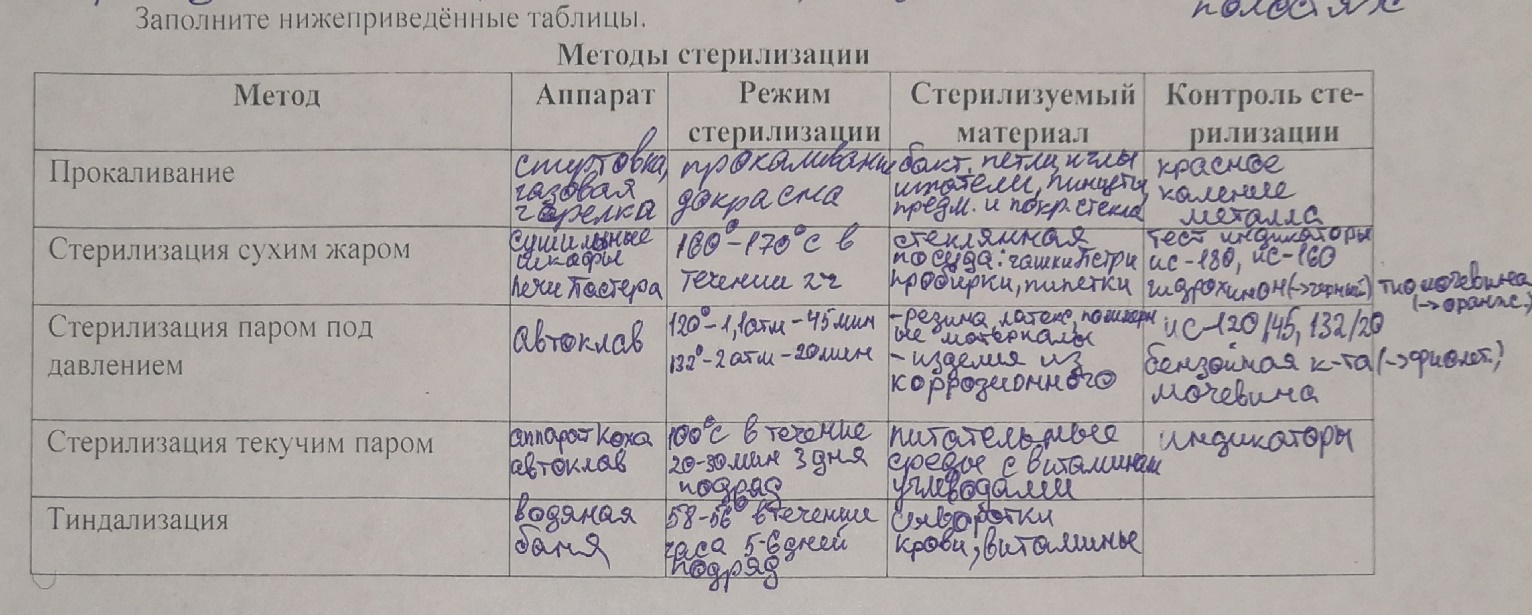 полостях
Заполните нижеприведённые таблицы.
Методы стерилизации
Метод
Аппарат
Режим
стерилизации
Стерилизуемый
материал
Контроль сте-
рилизации
Прокаливание
спиртовка,
газовая
горелка
прокаливание
докрасна
бакт. петли, иглы
шпатели, пинцеты,
предм. и покр. стекла
красное
каление
металла
Стерилизация сухим жаром
сушильные
шкафы
печи Пастера
160°-170°С в
течении 2ч
стеклянная
посуда: чашки Петри
пробирки, пипетки
тест индикаторы
ис-180, ис-160
гидрохинон (->черный) тиомочевина
(->оранж.)
Стерилизация паром под
давлением
автоклав
120°-1,1атм-45мин
132°-2атм-20мин
-резина, латекс,
ые материалы
-изделия из
коррозионного
ис-120/45, 132/20
бензойная к-та (->фиолет.)
мочевина
Стерилизация текучим паром
аппарат Коха
автоклав
100°С в течение
20-30мин 3 дня
подряд
питательные
среды с витаминами
углеводами
индикаторы
Тиндализация
водяная
баня
58-56° в течении
часа 5-6 дней
подряд
сыворотки
крови, витамины